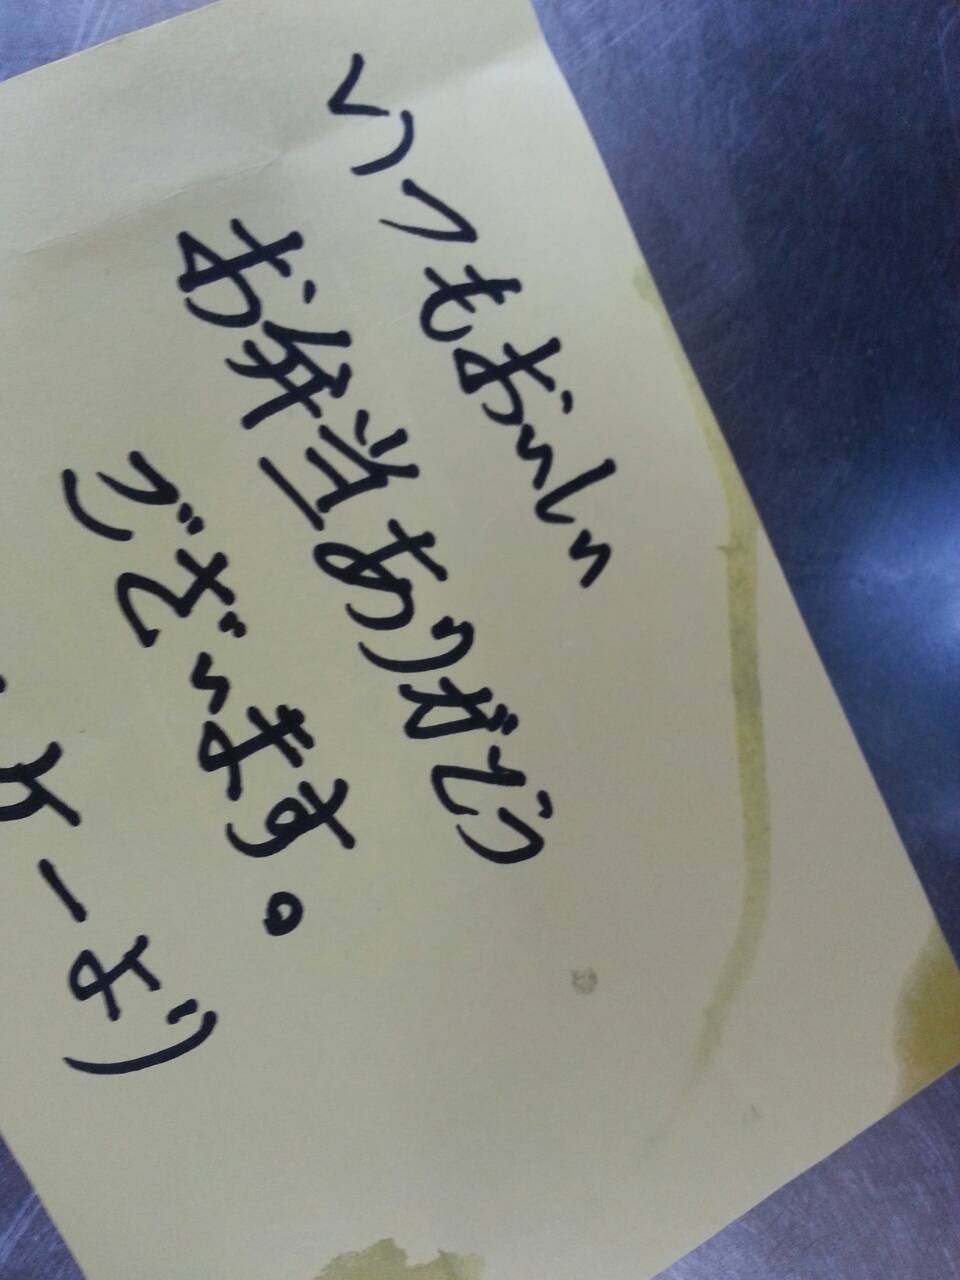 いつもおいしい
お弁当ありがとう
ございます。
ーより